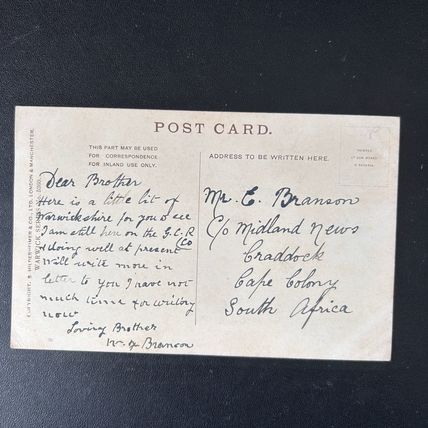 POST CARD.
THIS PART MAY BE USED
FOR CORRESPONDENCE
FOR INLAND USE ONLY.
ADDRESS TO BE WRITTEN HERE.
Dear Brother
Here is a little bit of
Warwickshire for you to see
I am still here on the G.C.R
Co
& doing well at present
Will write more in
letter to you I have not
much time for writing
now
Loving Brother
Branson
Mr. E. Branson
C/o Midland News
Craddock
Cape Colony
South Africa
COPYRIGHT, S. HILDESHEIMER & CO., LTD. LONDON & MANCHESTER.
WARWICK SERIES